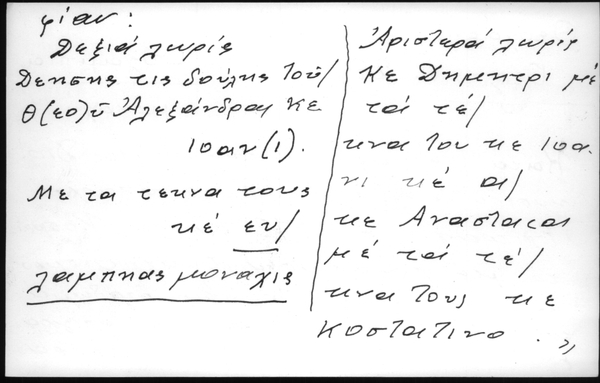 φίαν:
Δεξιά λωρίς
Δεησης τις δούλης τού/
Θ(εο)ῦ Ἀλεξάνδρας Κε
Ιοαν(ι).
Με τα τεκνα τους
κέ ευ/
λαμπηας μοναχις
Ἀριστερά λωρίς
Κε Δημητρι μέ
τά τέ/
κνα του κε Ιοα
νι κέ α/
κε Αναστασι
μέ τά τέ/
κνα τους κε
Κοστατινο . »